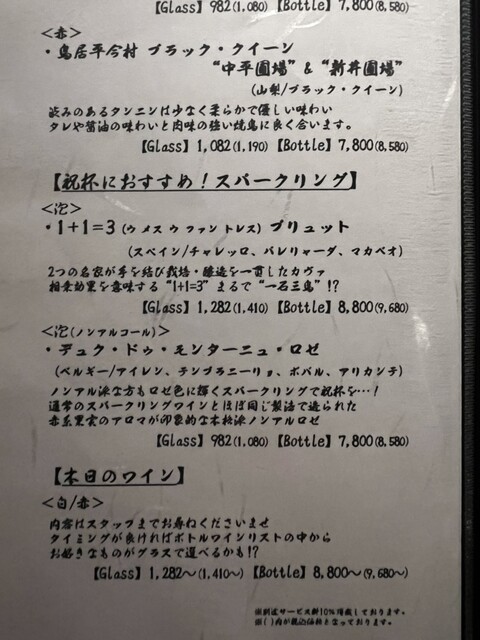 【Glass】982(1,080)【Bottle】7,800(8,580)
＜赤＞
・鳥居平今村 ブラック・クイーン
“中平圃場”&“新井圃場”
(山梨/ブラック・クイーン)
渋みのあるタンニンは少なく柔らかで優しい味わい
タレや醤油の味わいと肉味の強い焼鳥に良く合います。
【Glass】1,082(1,190)【Bottle】7,800(8,580)
【祝杯におすすめ！スパークリング】
＜泡＞
・1+1=3 (ウ メス ウ ファン トレス) ブリュット
(スペイン/チャレッロ、パレリャーダ、マカベオ)
2つの名家が手を結び栽培・醸造を一貫したカヴァ
相乗効果を意味する“1+1=3”まるで“一石三鳥”!?
【Glass】1,282(1,410)【Bottle】8,800(9,680)
＜泡(ノンアルコール)＞
・デュク・ドゥ・モンターニュ・ロゼ
(ベルギー/アイレン、テンプラニーリョ、ボバル、アリカンテ)
ノンアル派な方もロゼ色に輝くスパークリングで祝杯を…！
通常のスパークリングワインとほぼ同じ製法で造られた
赤系果実のアロマが印象的な本格派ノンアルロゼ
【Glass】982(1,080)【Bottle】7,800(8,580)
【本日のワイン】
＜白/赤＞
内容はスタッフまでお尋ねくださいませ
タイミングが良ければボトルワインリストの中から
お好きなものがグラスで選べるかも!?
【Glass】1,282〜(1,410〜)【Bottle】8,800〜(9,680〜)
※別途サービス料10%頂戴しております。
※( )内が税込価格となっております。